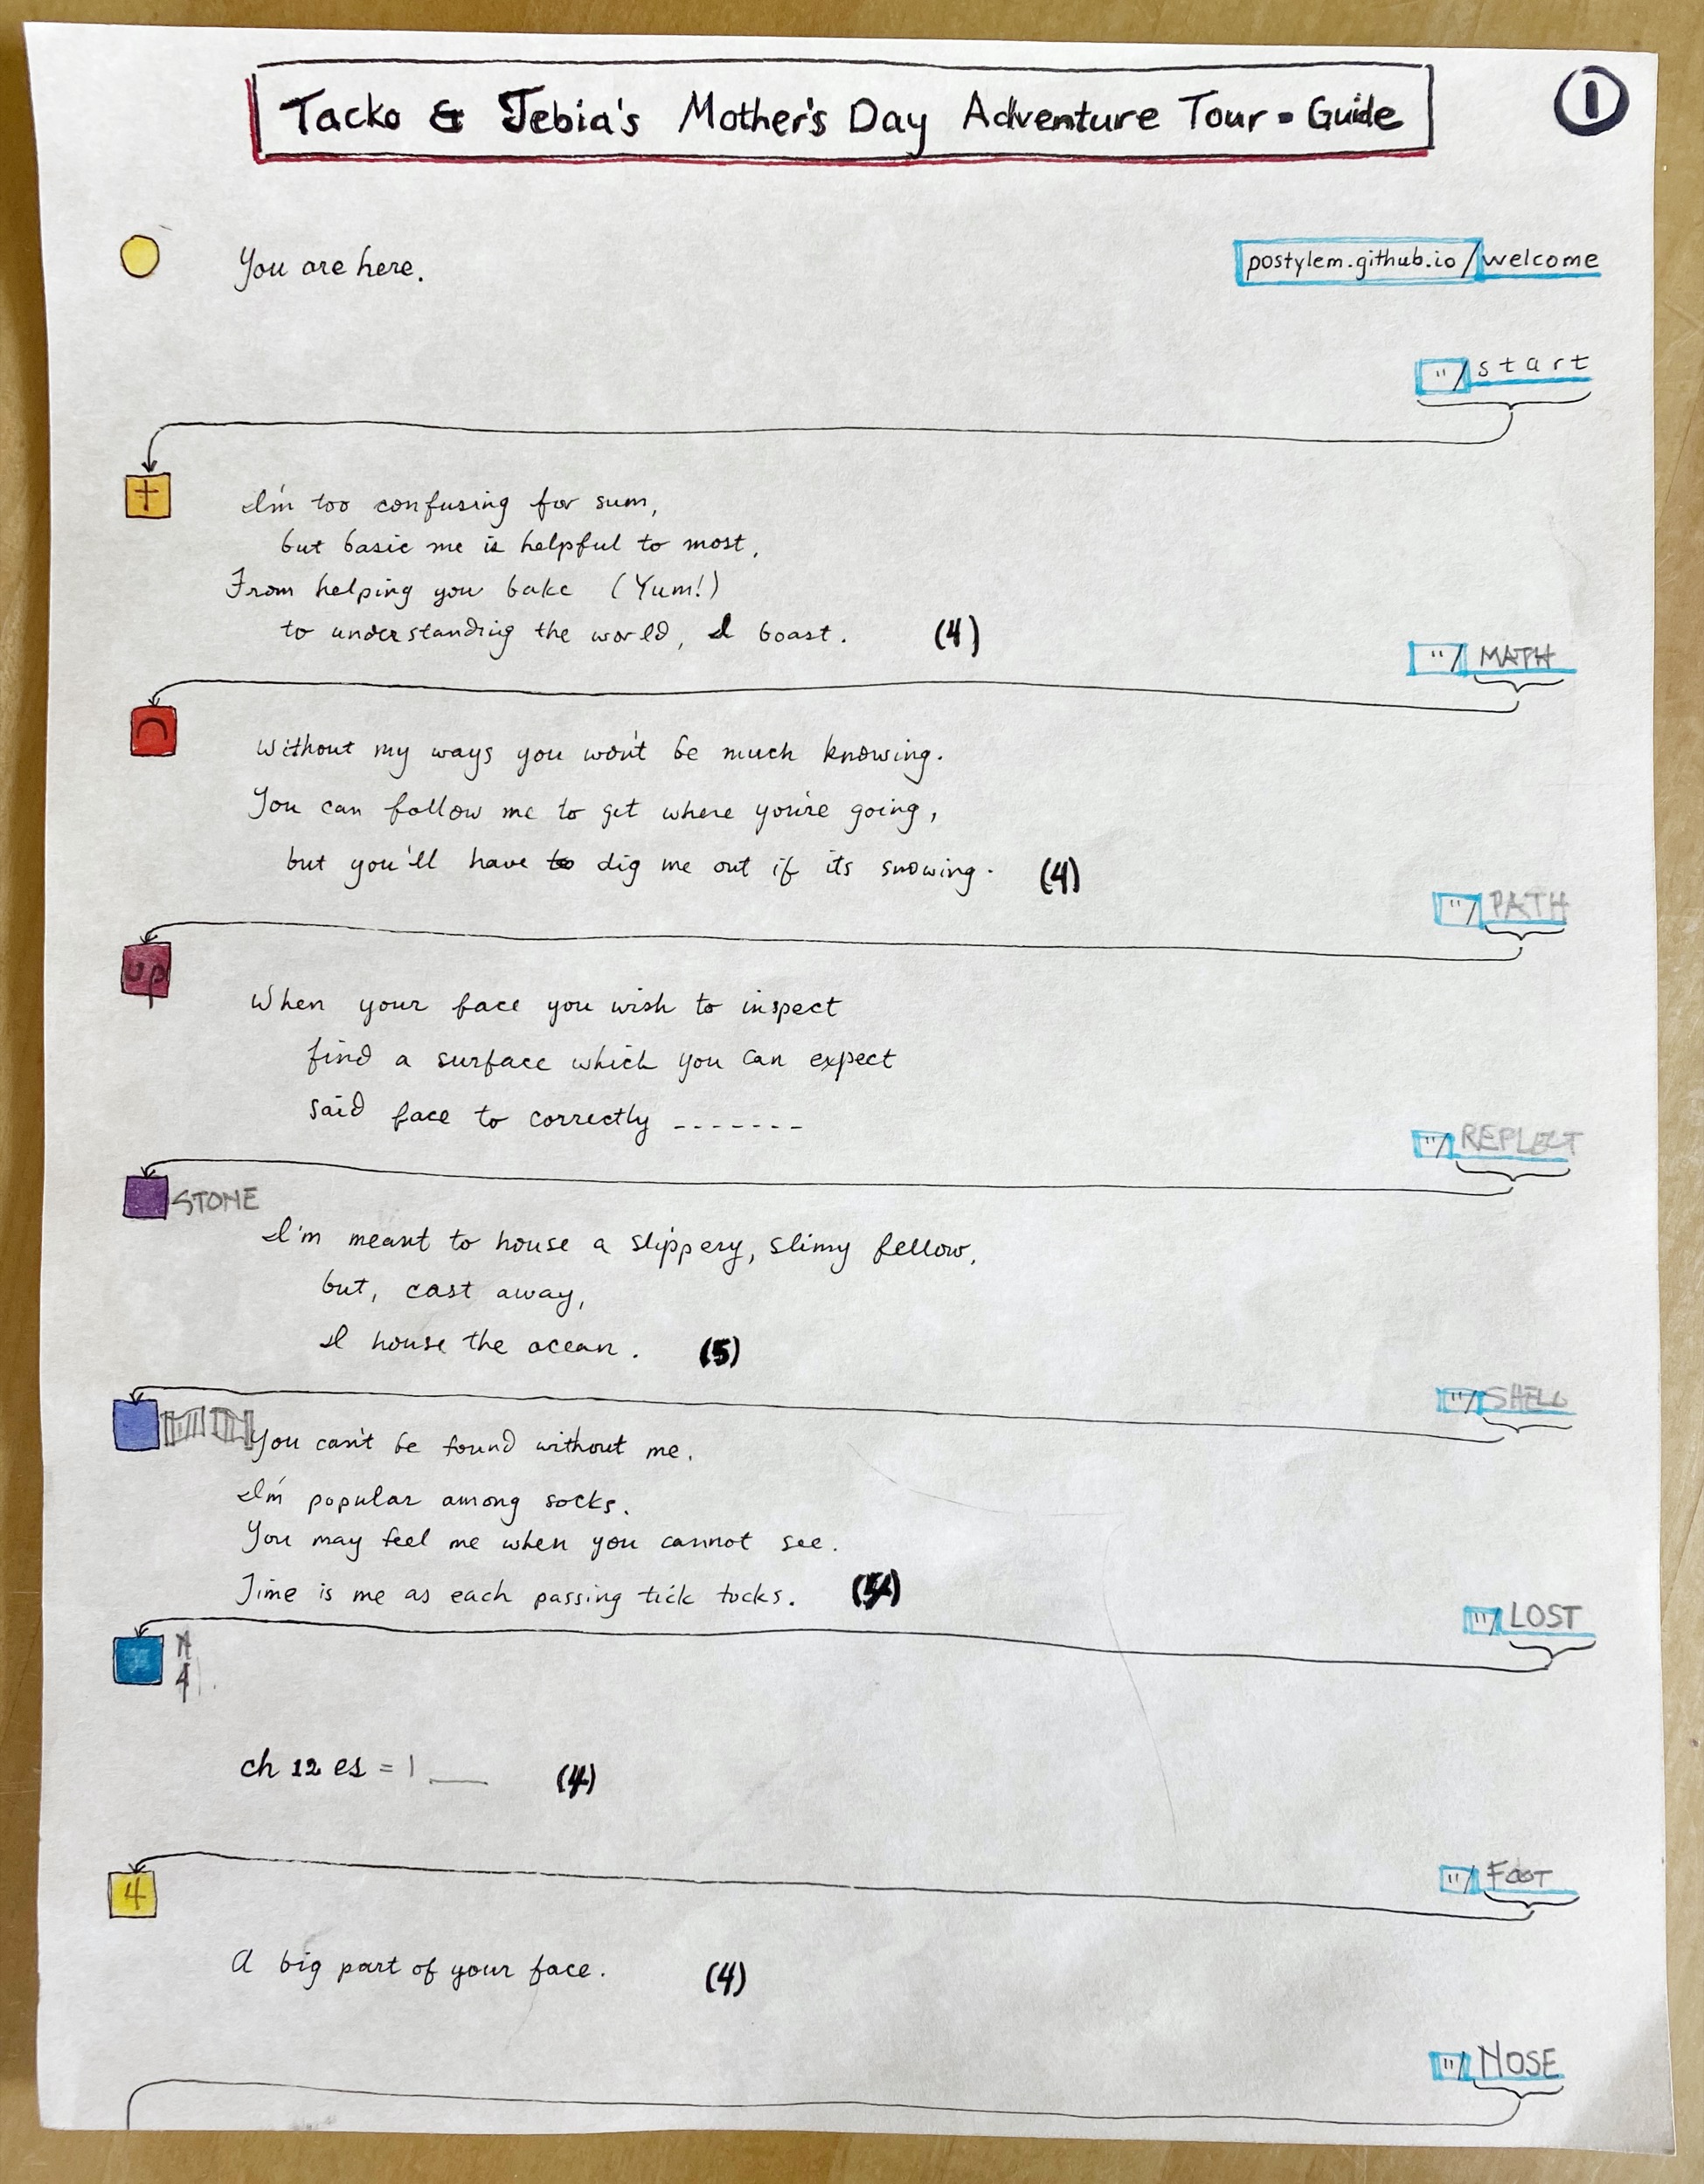 Tacko & Jebia's Mother's Day Adventure Tour-Guide
1
You are here.
postylem.github.io/welcome
"/start
+
I'm too confusing for sum,
but basic me is helpful to most,
From helping you bake (Yum!)
to understanding the world, I boast. (4)
"/MATH
Without my ways you won't be much knowing.
You can follow me to get where you're going,
but you'll have to dig me out if its snowing. (4)
"/PATH
up
When your face you wish to inspect
find a surface which you can expect
said face to correctly -------
"/REFLECT
STONE
I'm meant to house a slippery, slimy fellow,
but, cast away,
I house the ocean. (5)
"/SHELL
You can't be found without me.
I'm popular among socks.
You may feel me when you cannot see.
Time is me as each passing tick tocks.
"/LOST
ch 12 es = 1 __ (4)
"/FOOT
4
A big part of your face. (4)
"/NOSE